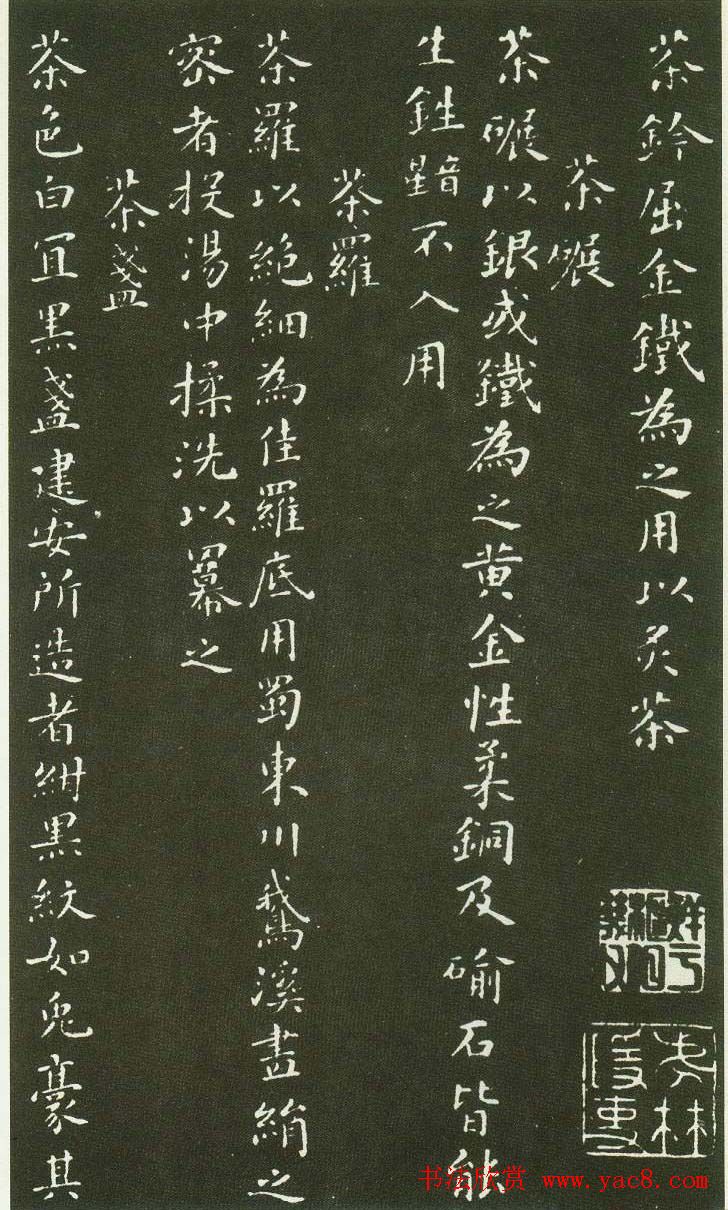 茶鈐屈金鐵為之用以炙茶
茶碾
茶碾以銀或鐵為之黄金性柔銅及石皆能
生鉎音星不入用
茶羅
茶羅以絶細為佳羅底用蜀東川鵞溪畫絹之
密者投湯中揉洗以羃之
茶盞
茶色白宜黒盞建安所造者紺黒紋如兔豪其
书法欣赏 www.yac8.com